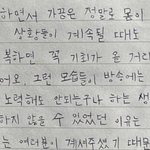 하면서 가끔은 정말로 몸이
상황들이 계속될 때도
복하면 꼭 기회가 올 거라
어요 그런 모습들이 방송에는
노력해도 안되는구나 하는 생
하지 않을 수 있었던 이유는
는 여러분이 계셔주셨기 때문